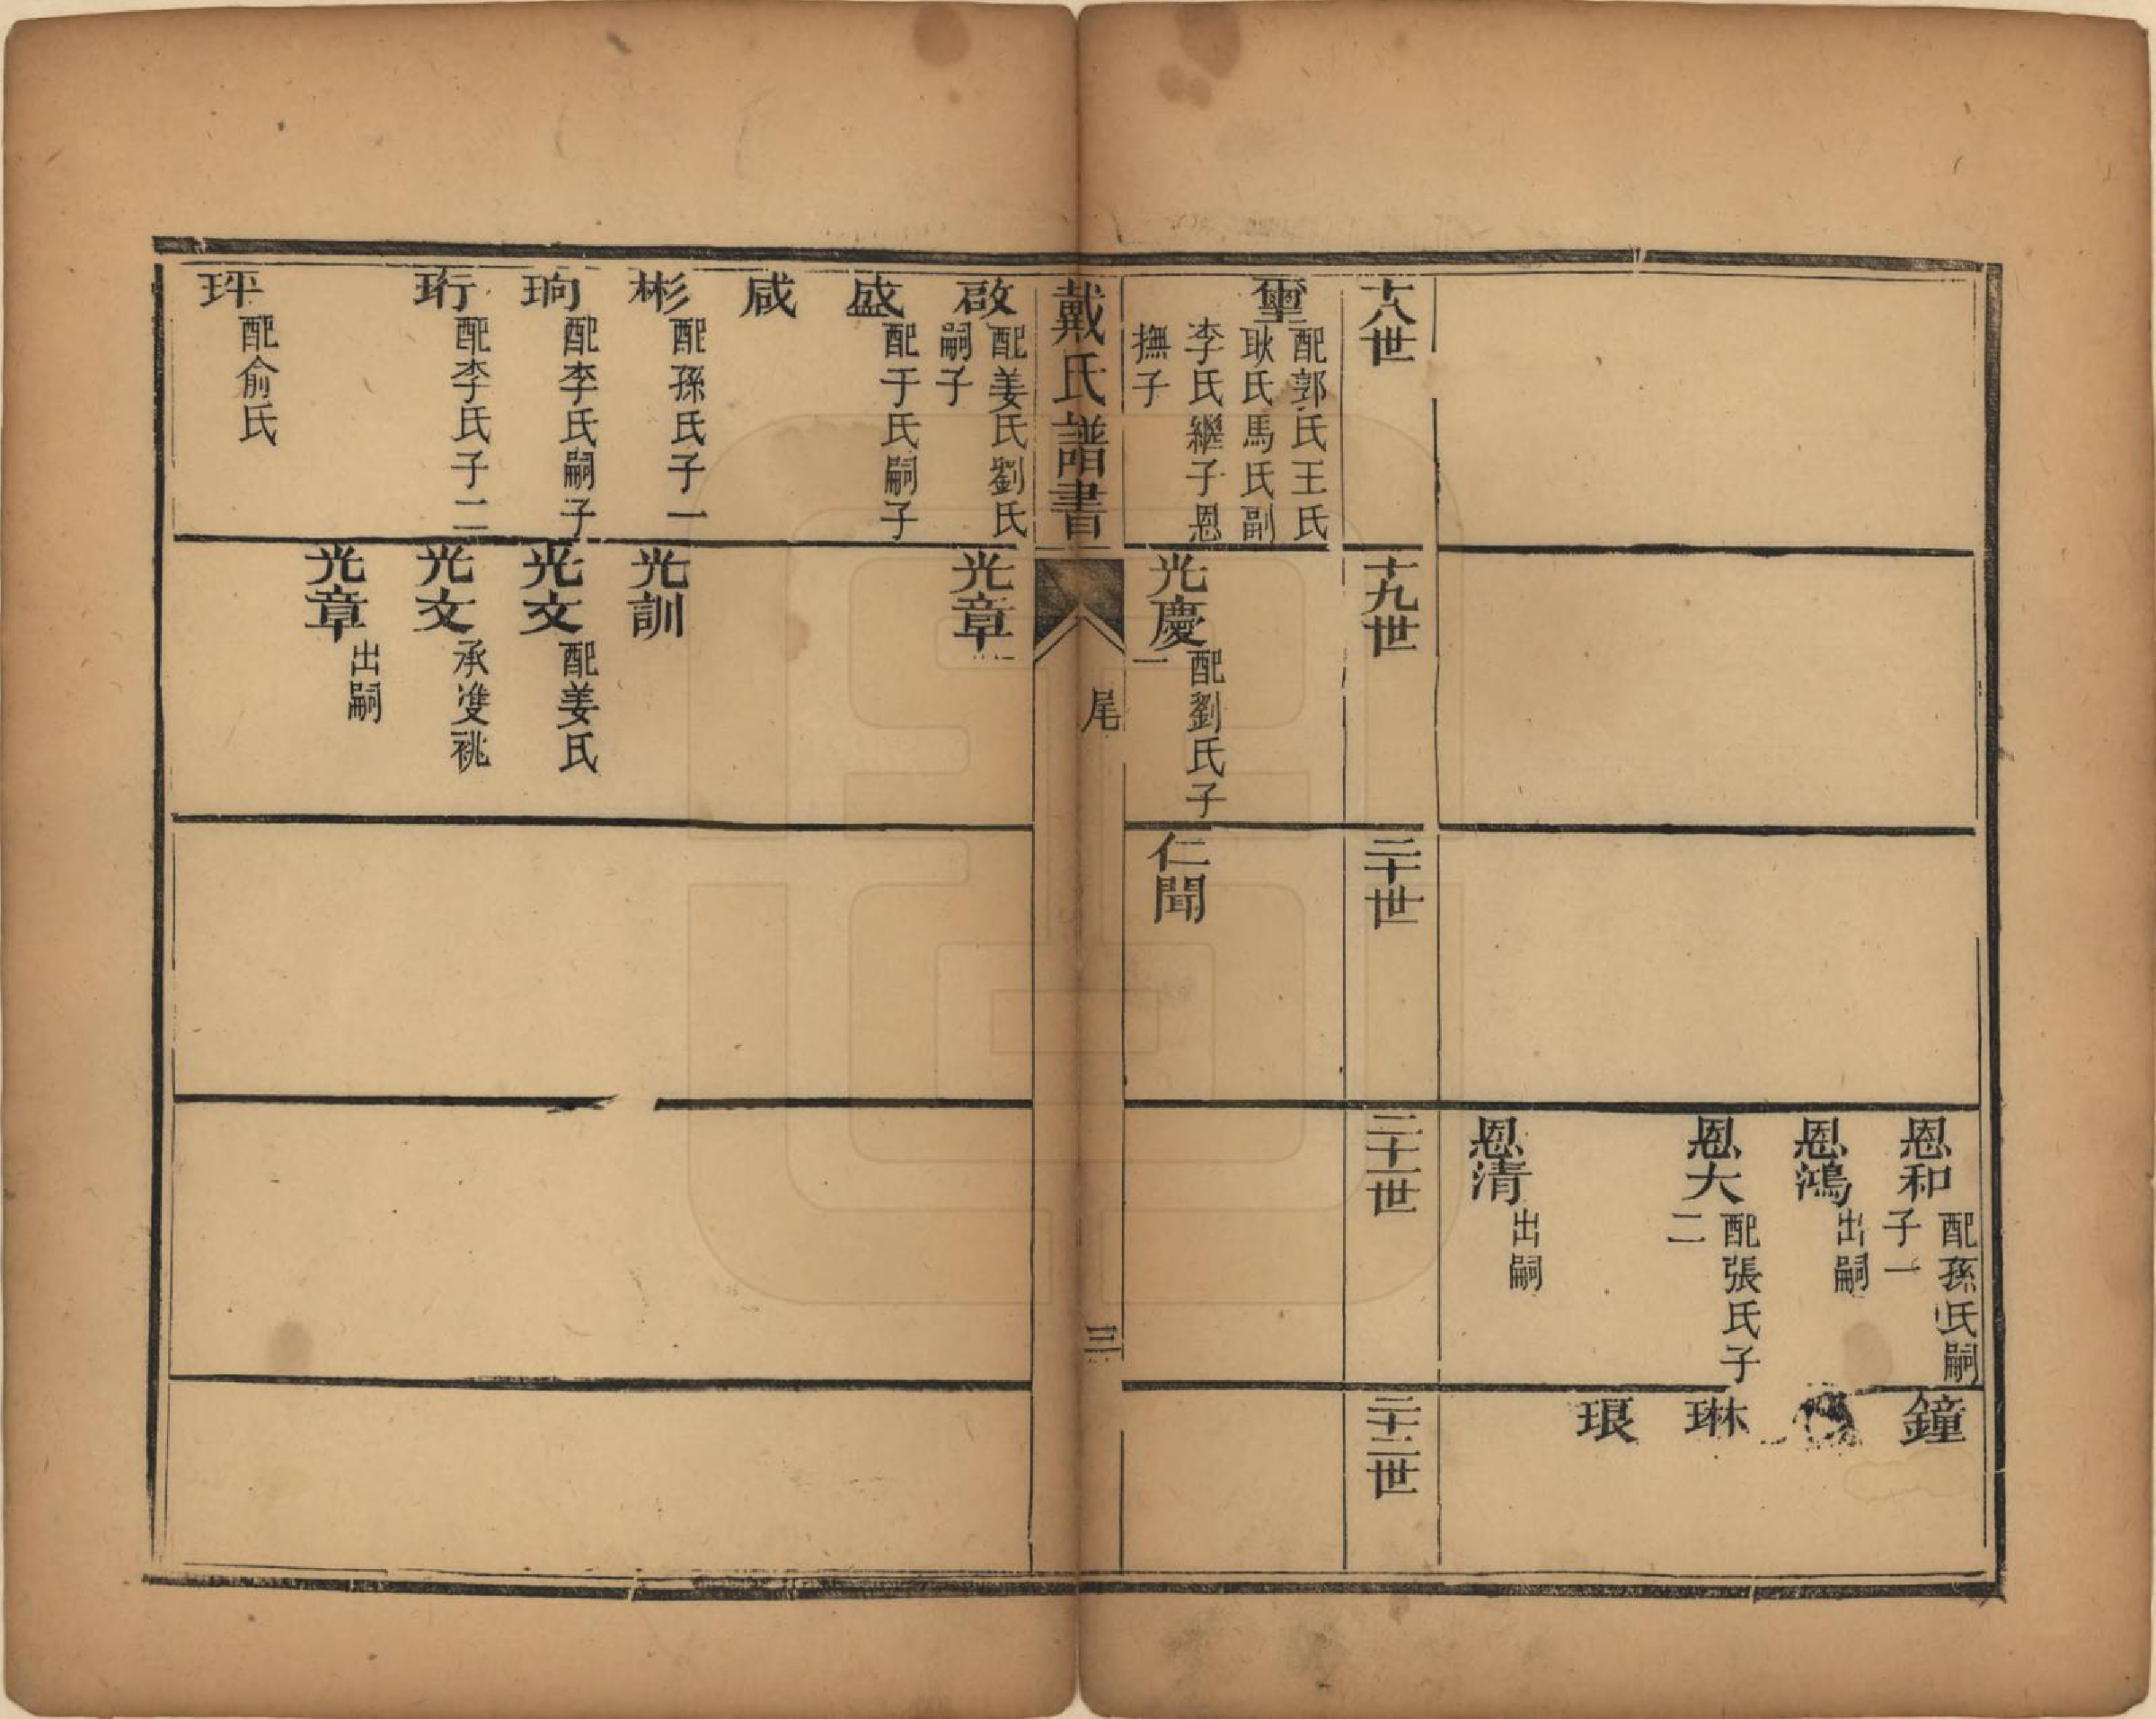 恩和
配孫氏嗣
子一
恩鴻
出嗣
恩大
配張氏子
二
恩清
出嗣
鐘
琳
琅
十八世
十九世
二十世
二十一世
二十二世
璽
配郭氏王氏
耿氏馬氏副
李氏繼子恩
撫子
光慶
配劉氏子
一
仁聞
戴氏譜書
尾
三
啟
配姜氏劉氏
嗣子
光章
盛
配于氏嗣子
咸
彬
配孫氏子一
光訓
珦
配李氏嗣子
光文
配姜氏
珩
配李氏子二
光文
承雙祧
光章
出嗣
玶
配俞氏